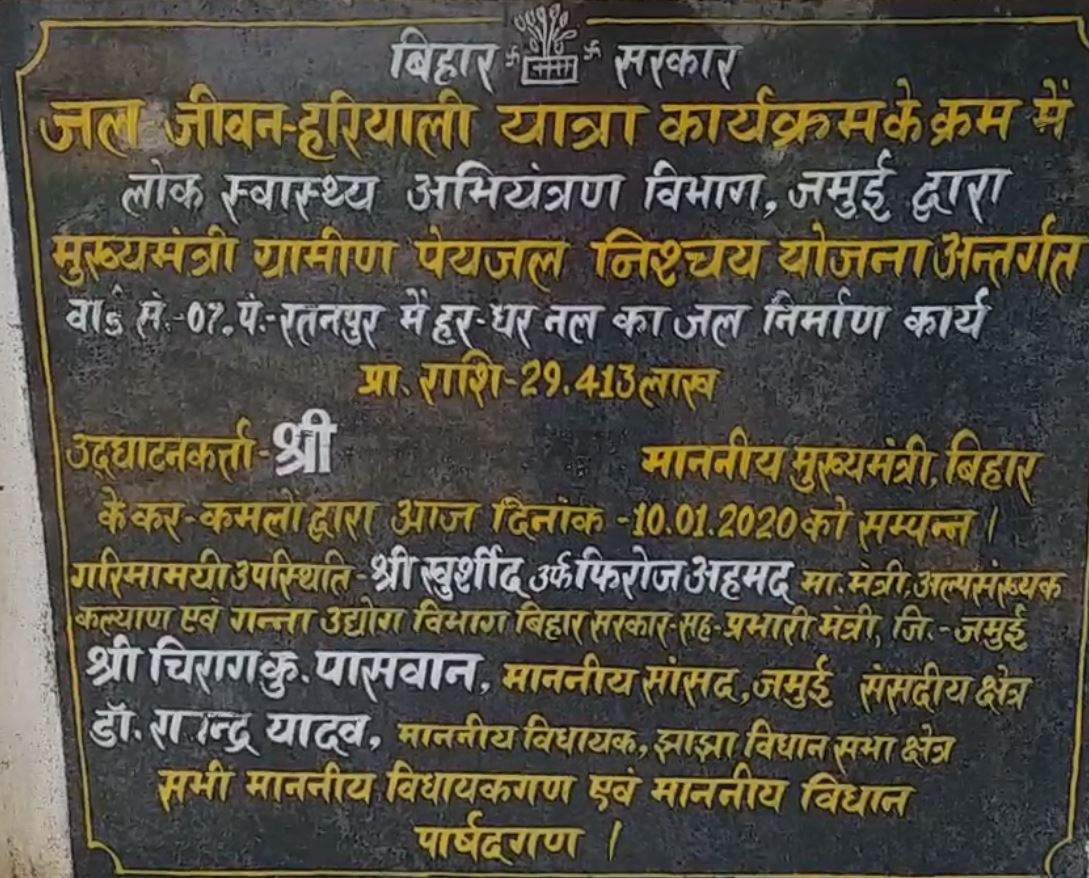 बिहार सरकार
जल जीवन-हरियाली यात्रा कार्यक्रम के क्रम में
लोक स्वास्थ्य अभियंत्रण विभाग, जमुई द्वारा
मुख्यमंत्री ग्रामीण पेयजल निश्चय योजना अन्तर्गत
सं.-07. पं.-रतनपुर में हर-घर नल का जल निर्माण कार्य
प्रा. राशि-29.413 लाख
उद्घाटनकर्त्ता-श्री माननीय मुख्यमंत्री, बिहार
के कर-कमलों द्वारा आज दिनांक -10.01.2020 को सम्पन्न।
गरिमामयी उपस्थिति-श्री खुर्शीद उर्फ फिरोज अहमद मा. मंत्री, अल्पसंख्यक
कल्याण एवं गन्ना उद्योग विभाग बिहार सरकार-सह-प्रभारी मंत्री, जि.-जमुई
श्री चिराग कु. पासवान, माननीय सांसद, जमुई संसदीय क्षेत्र
डॉ. यादव, माननीय विधायक, झाझा विधान सभा क्षेत्र
सभी माननीय विधायकगण एवं माननीय विधान
पार्षदगण ।